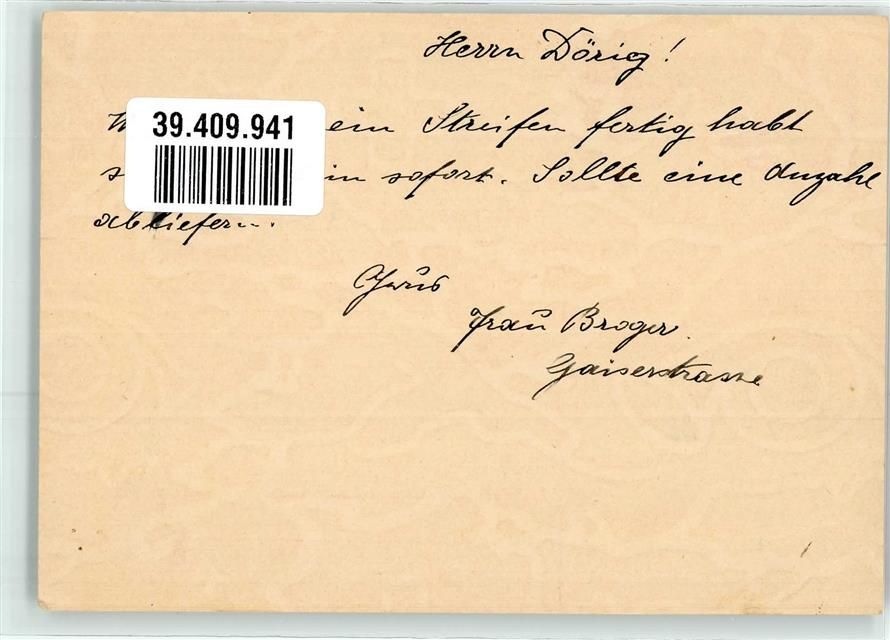 Herrn Dörig!
39.409.941
ein Streifen fertig habt
in sofort. Sollte eine Anzahl
abliefern.
Grus
Frau Broger.
Gaiserstrasse